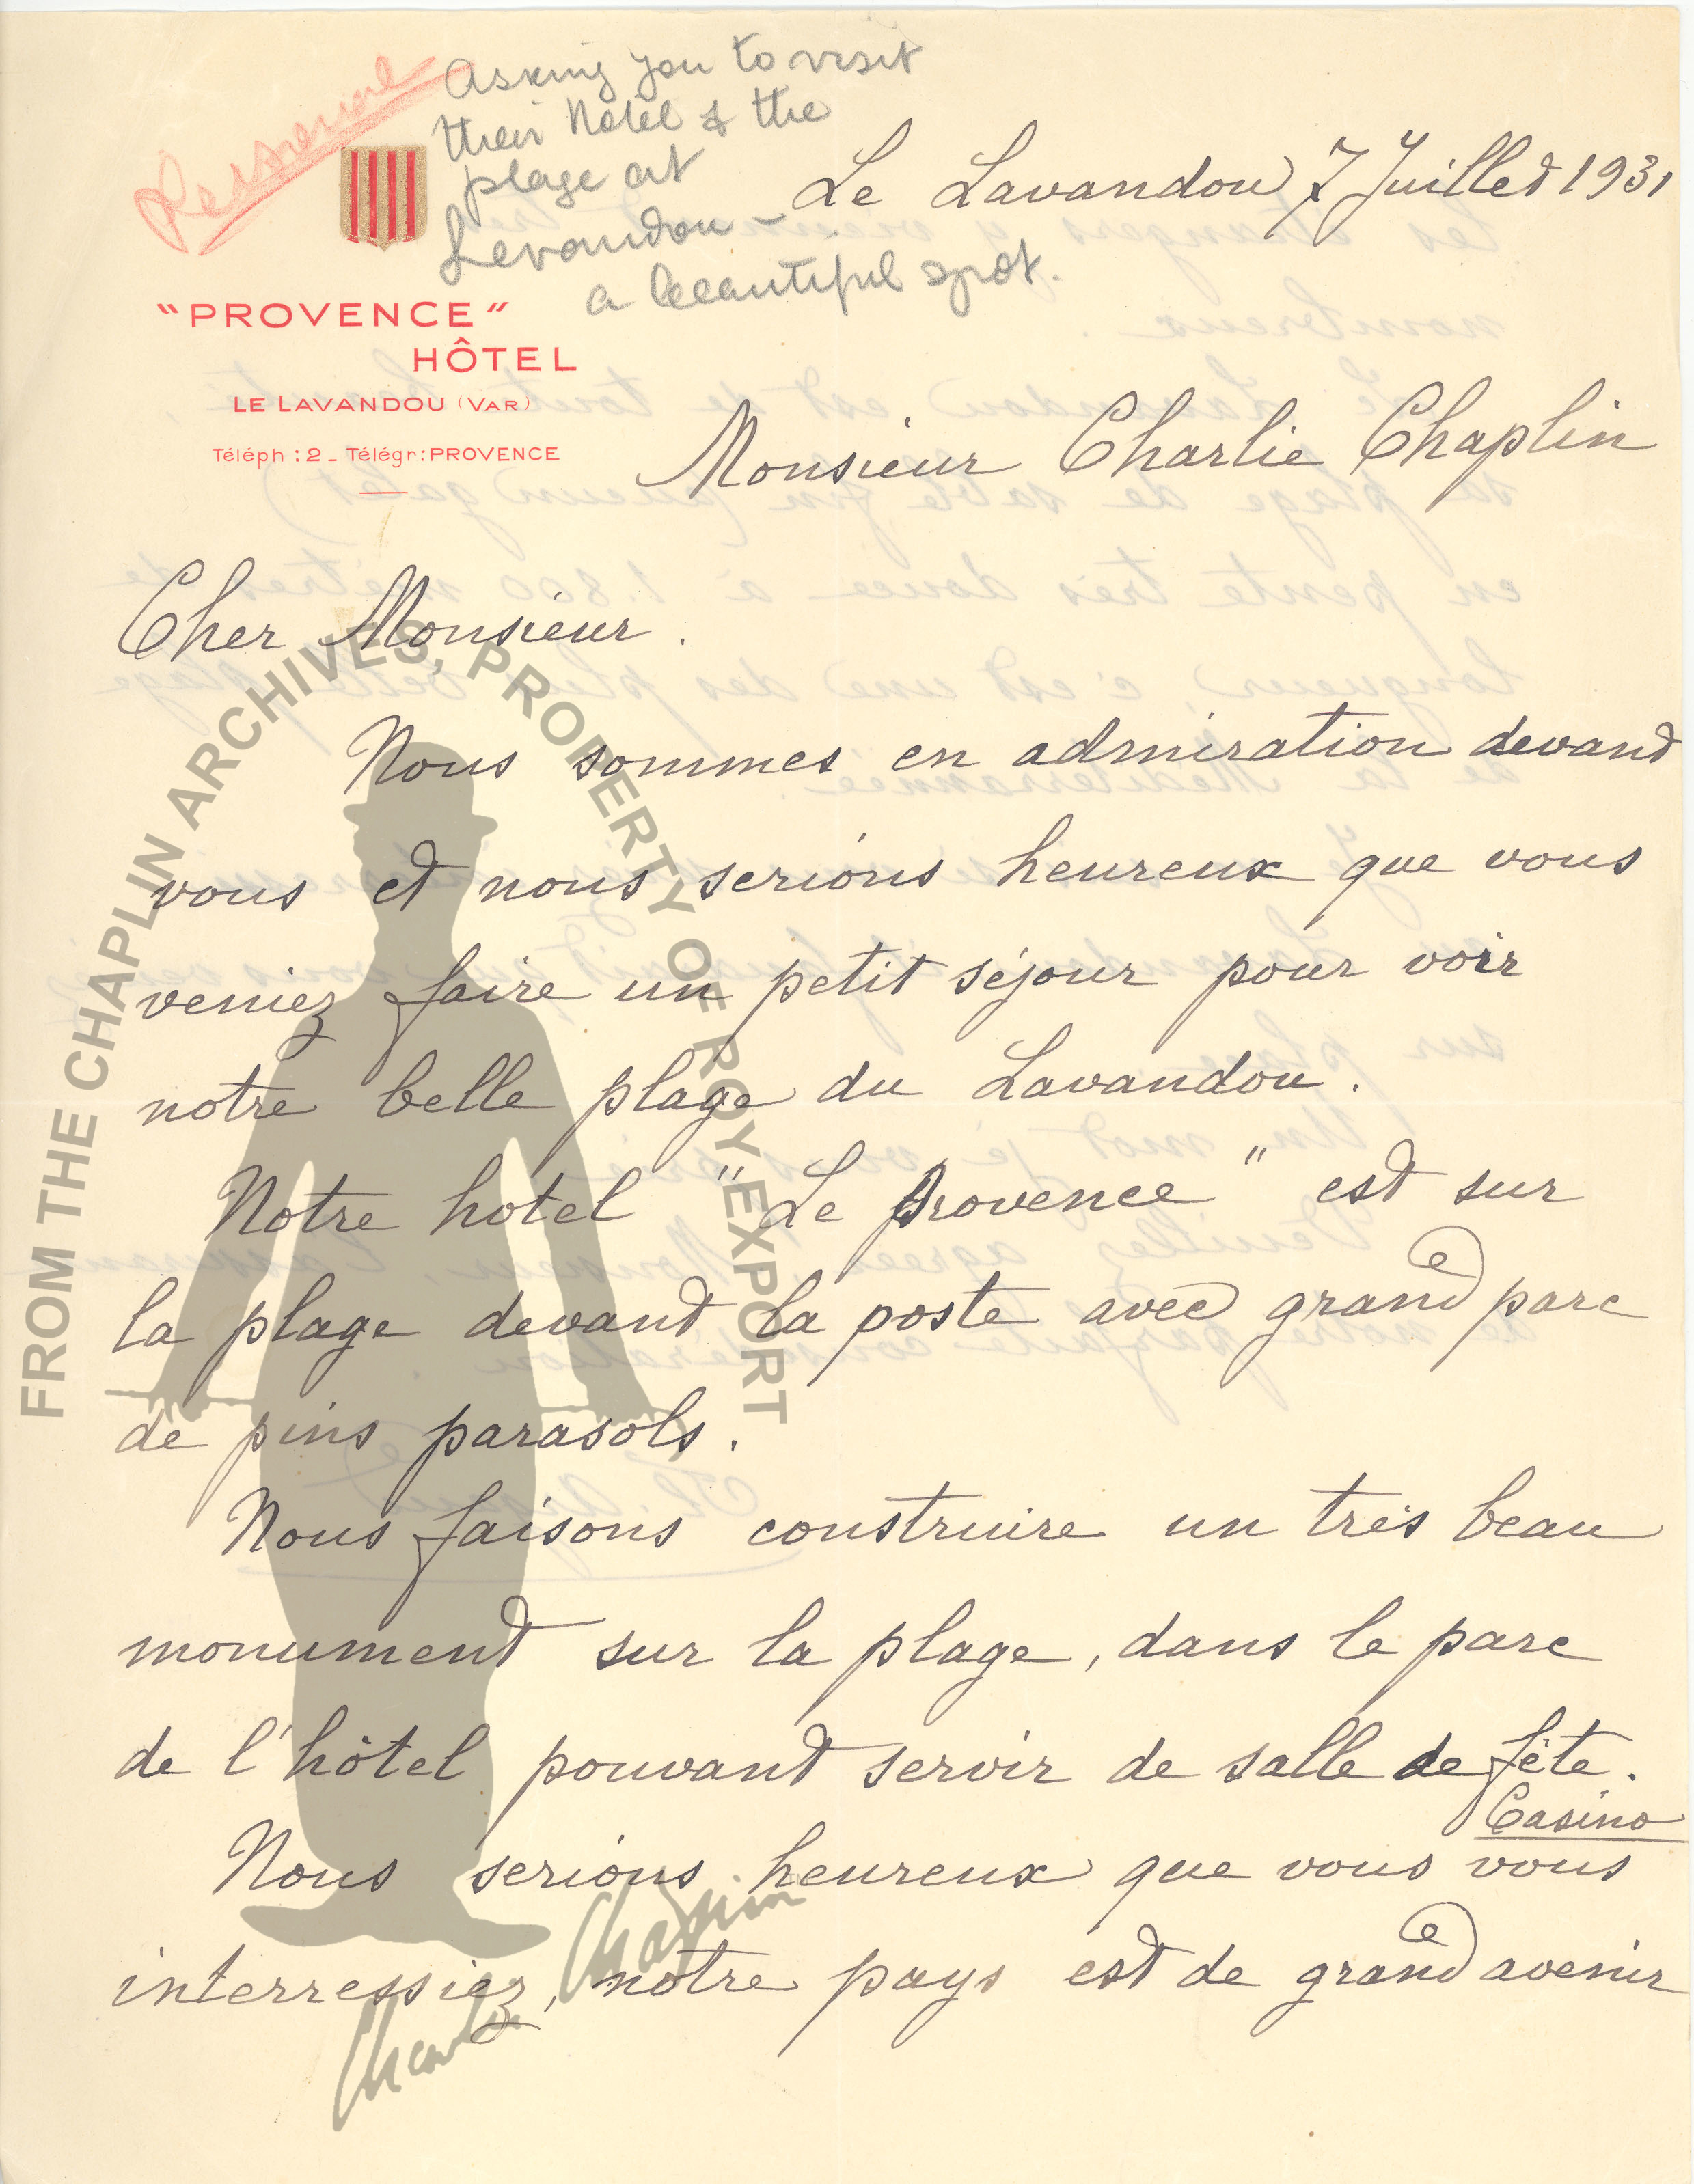 Personal
Asking you to visit
their Hotel & the
plage at
Levandou –
a beautiful spot.
Le Lavandou 7 Juillet 1931
"PROVENCE"
HÔTEL
LE LAVANDOU (VAR)
Téléph : 2 _ Télégr : PROVENCE
Monsieur Charlie Chaplin
Cher Monsieur.
Nous sommes en admiration devant
vous et nous serions heureux que vous
veniez faire un petit séjour pour voir
notre belle plage du Lavandou.
Notre hotel "Le Provence" est sur
la plage devant la poste avec grand parc
de pins parasols.
Nous faisons construire un très beau
monument sur la plage, dans le parc
de l'hôtel pouvant servir de salle de fête.
Casino
Nous serions heureux que vous vous
interressiez, notre pays est de grand avenir
FROM THE CHAPLIN ARCHIVES, PROPERTY OF ROY EXPORT
Charlie Chaplin